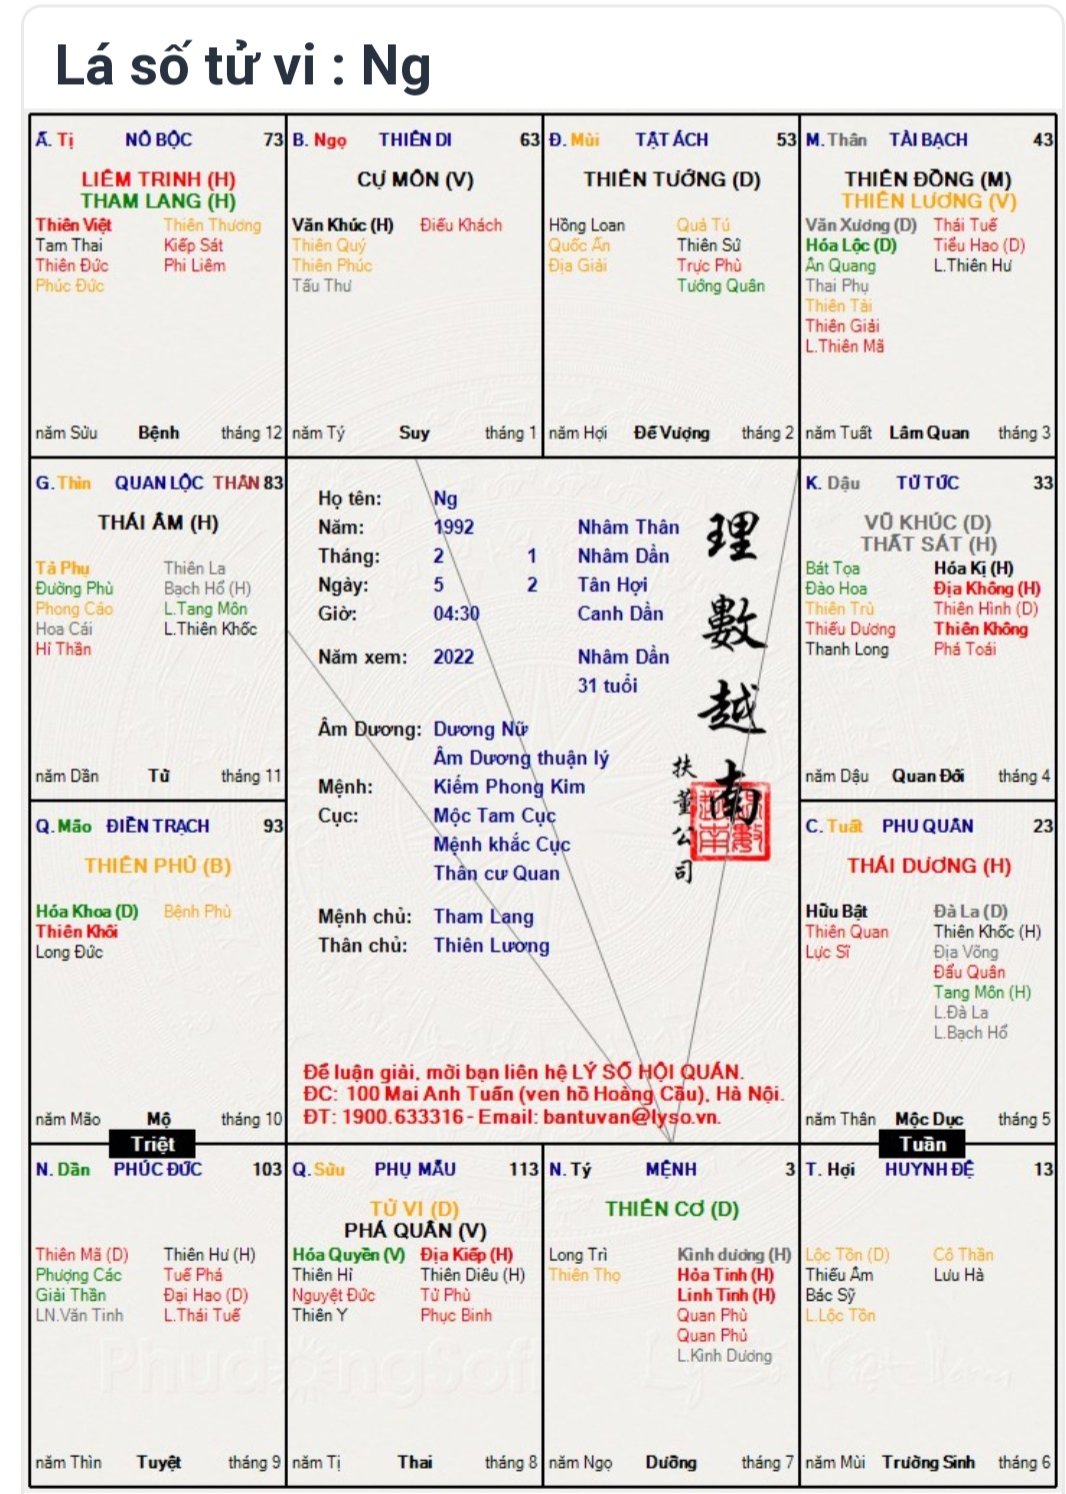 Lá số tử vi : Ng
Ấ. Tị NÔ BỘC 73
LIÊM TRINH (H)
THAM LANG (H)
Thiên Việt Thiên Thương
Tam Thai Kiếp Sát
Thiên Đức Phi Liêm
Phúc Đức
năm Sửu Bệnh tháng 12
B. Ngọ THIÊN DI 63
CỰ MÔN (V)
Văn Khúc (H) Điếu Khách
Thiên Quý
Thiên Phúc
Tấu Thư
năm Tý Suy tháng 1
Đ. Mùi TẬT ÁCH 53
THIÊN TƯỚNG (D)
Hồng Loan Quả Tú
Quốc Ấn Thiên Sứ
Địa Giải Trực Phù
Tướng Quân
năm Hợi Đế Vượng tháng 2
M. Thân TÀI BẠCH 43
THIÊN ĐỒNG (M)
THIÊN LƯƠNG (V)
Văn Xương (D) Thái Tuế
Hóa Lộc (D) Tiểu Hao (D)
Ân Quang L.Thiên Hư
Thai Phụ
Thiên Tài
Thiên Giải
L.Thiên Mã
năm Tuất Lâm Quan tháng 3
G. Thìn QUAN LỘC THÂN 83
THÁI ÂM (H)
Tả Phụ Thiên La
Đường Phù Bạch Hổ (H)
Phong Cáo L.Tang Môn
Hoa Cái L.Thiên Khốc
Hỉ Thần
năm Dần Tử tháng 11
Họ tên: Ng
Năm: 1992 Nhâm Thân
Tháng: 2 1 Nhâm Dần
Ngày: 5 2 Tân Hợi
Giờ: 04:30 Canh Dần
Năm xem: 2022 Nhâm Dần
31 tuổi
Âm Dương: Dương Nữ
Âm Dương thuận lý
Mệnh: Kiếm Phong Kim
Cục: Mộc Tam Cục
Mệnh khắc Cục
Thân cư Quan
Mệnh chủ: Tham Lang
Thân chủ: Thiên Lương
理數越南
扶董公司
Để luận giải, mời bạn liên hệ LÝ SỐ HỘI QUÁN.
ĐC: 100 Mai Anh Tuấn (ven hồ Hoàng Cầu), Hà Nội.
ĐT: 1900.633316 - Email: bantuvan@lyso.vn.
K. Dậu TỬ TỨC 33
VŨ KHÚC (D)
THẤT SÁT (H)
Bát Tọa Hóa Kị (H)
Đào Hoa Địa Không (H)
Thiên Trù Thiên Hình (D)
Thiếu Dương Thiên Không
Thanh Long Phá Toái
năm Dậu Quan Đới tháng 4
Q. Mão ĐIỀN TRẠCH 93
THIÊN PHỦ (B)
Hóa Khoa (D) Bệnh Phù
Thiên Khôi
Long Đức
năm Mão Mộ tháng 10
C. Tuất PHU QUÂN 23
THÁI DƯƠNG (H)
Hữu Bật Đà La (D)
Thiên Quan Thiên Khốc (H)
Lực Sĩ Địa Võng
Đẩu Quân
Tang Môn (H)
L.Đà La
L.Bạch Hổ
năm Thân Mộc Dục tháng 5
Triệt
Tuần
N. Dần PHÚC ĐỨC 103
Thiên Mã (D) Thiên Hư (H)
Phượng Các Tuế Phá
Giải Thần Đại Hao (D)
LN.Văn Tinh L.Thái Tuế
năm Thìn Tuyệt tháng 9
Q. Sửu PHỤ MẪU 113
TỬ VI (D)
PHÁ QUÂN (V)
Hóa Quyền (V) Địa Kiếp (H)
Thiên Hỉ Thiên Diêu (H)
Nguyệt Đức Tử Phù
Thiên Y Phục Binh
năm Tị Thai tháng 8
N. Tý MỆNH 3
THIÊN CƠ (D)
Long Trì Kình dương (H)
Thiên Thọ Hỏa Tinh (H)
Linh Tinh (H)
Quan Phù
Quan Phủ
L.Kình Dương
năm Ngọ Dưỡng tháng 7
T. Hợi HUYNH ĐỆ 13
Lộc Tồn (D) Cô Thần
Thiếu Âm Lưu Hà
Bác Sỹ
L.Lộc Tồn
năm Mùi Trường Sinh tháng 6